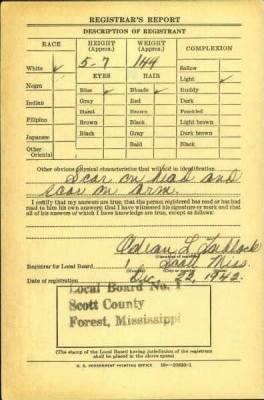 REGISTRAR'S REPORT
DESCRIPTION OF REGISTRANT
RACE
HEIGHT (Approx.)
WEIGHT (Approx.)
COMPLEXION
White ✓
5-7
144
Sallow
EYES
HAIR
Light ✓
Negro
Blue ✓
Blonde ✓
Ruddy
Indian
Gray
Red
Dark
Hazel
Brown
Freckled
Filipino
Brown
Black
Light brown
Japanese
Black
Gray
Dark brown
Other
Oriental
Bald
Black
Other obvious physical characteristics that will aid in identification
Scar on head and
scar on arm.
I certify that my answers are true; that the person registered has read or has had
read to him his own answers; that I have witnessed his signature or mark and that
all of his answers of which I have knowledge are true, except as follows:
L.
Registrar for Local Board
1 Scott Miss.
Date of registration
Dec 22, 1942
Local Board No. 1
Scott County
Forest, Mississippi
(The stamp of the Local Board having jurisdiction of the registrant
shall be placed in the above space)
U. S. GOVERNMENT PRINTING OFFICE